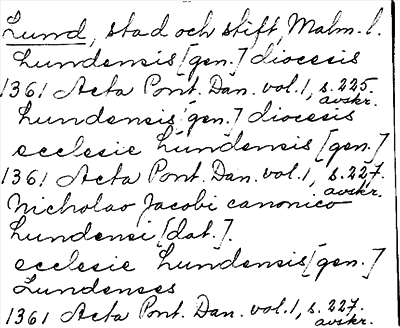 Lund, stad och stift, Malm. l.
Lundensis [gen.] diocesis
1361 Acta Pont. Dan. vol. 1, s. 225.
avskr.
Lundensis [gen.] diocesis
ecclesie Lundensis [gen.]
1361 Acta Pont. Dan. vol. 1, s. 227.
avskr.
Nicholao Jacobi canonico
Lundensi [dat.].
ecclesie Lundensis [gen.]
Lundenses
1361 Acta Pont. Dan. vol. 1, s. 227.
avskr.